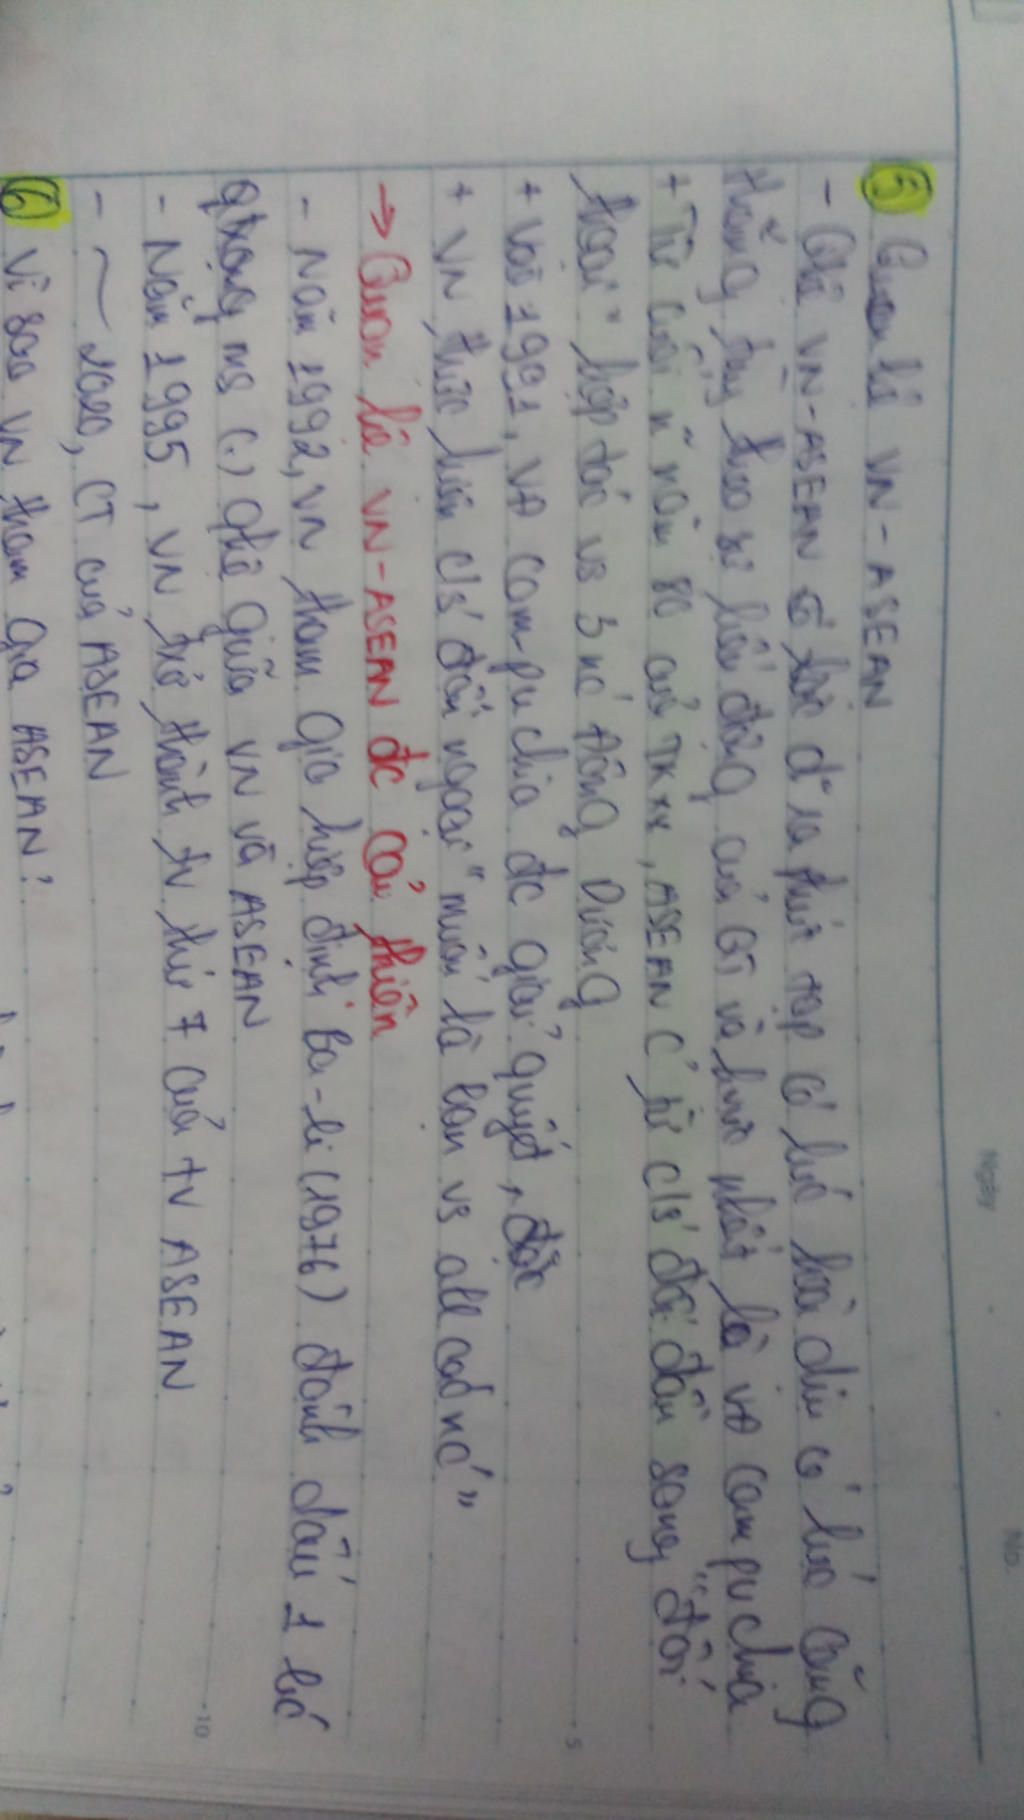 Ngày
No.
⑤ Quan hệ VN-ASEAN
- QH VN-ASEAN diễn ra phức tạp có lúc hoà dịu có lúc căng
thẳng tùy theo sự biến động của QT và khu vực nhất là vđ campuchia
+ Từ cuối n~ năm 80 của TK XX, ASEAN c' từ c/s' đối đầu sang "đối
thoại" hợp tác vs 3 nc' Đông Dương
+ Vào 1991, vđ cam-pu-chia đc giải quyết,
+ VN thực hiện c/s' đối ngoại "muốn là bạn vs all các nc'"
→ Quan hệ VN-ASEAN đc cải thiện
- Năm 1992, VN tham gia hiệp định Ba-li (1976) đánh dấu 1 bc'
qtrọng ms (.) qhệ giữa VN và ASEAN
- Năm 1995, VN trở thành tv thứ 7 của tv ASEAN
- ~ 2020, CT của ASEAN
⑥ Vì sao VN tham gia ASEAN?
5
10